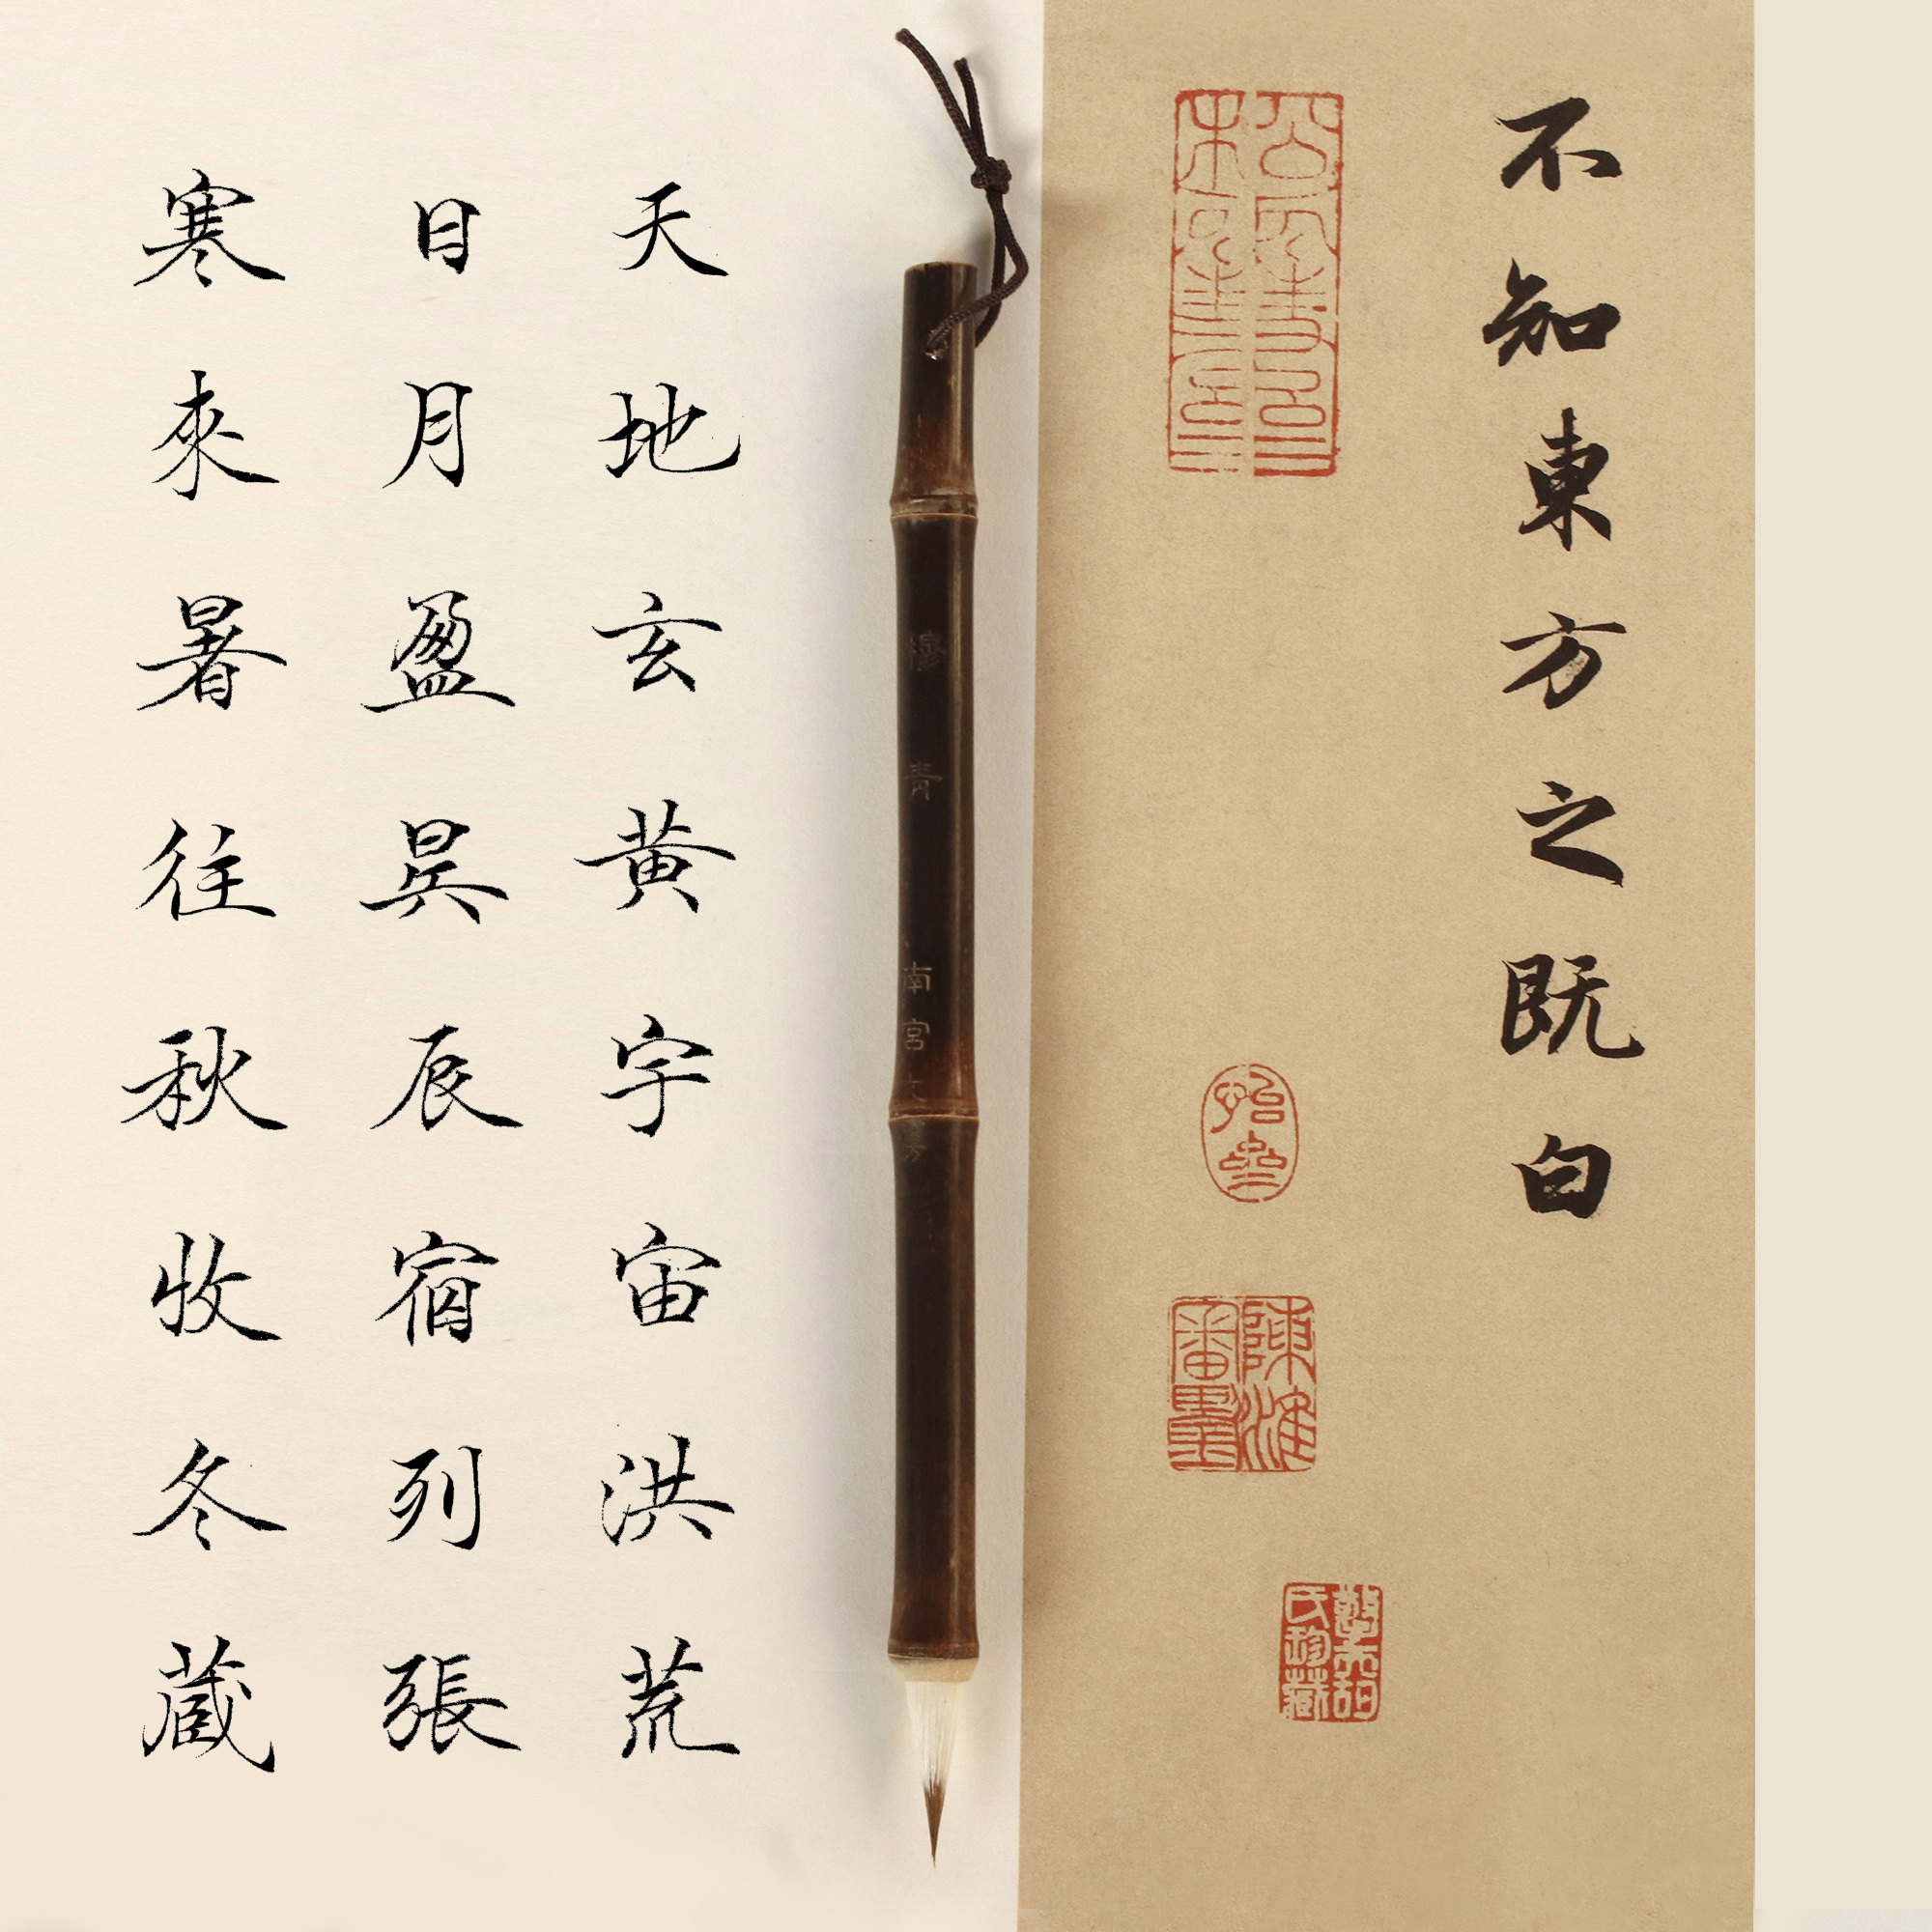 不知東方之既白
陳淮
天地玄黄宇宙洪荒
日月盈昃辰宿列張
寒來暑往秋收冬藏